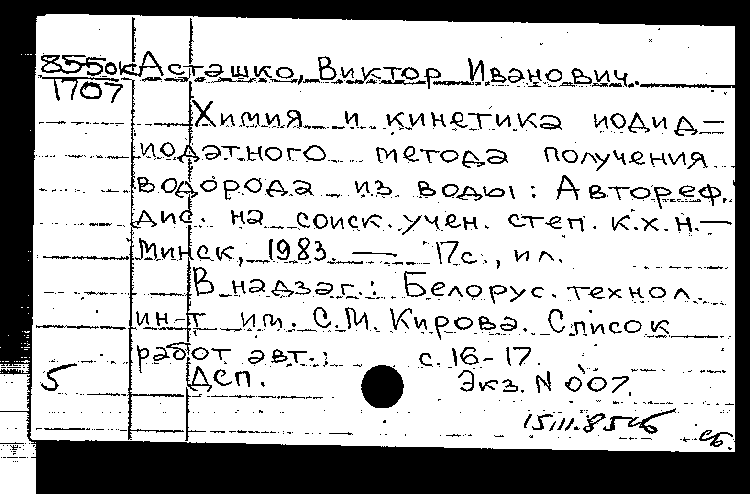 855ок Асташко, Виктор Иванович.
1707
Химия и кинетика иодид=
иодатного метода получения
водорода из воды: Автореф.
дис. на соиск. учен. степ. к.х.н.—
Минск, 1983. — 17с., ил.
В надзаг.: Белорус. технол.
ин-т им. С.М. Кирова. Список
работ авт.: с. 16-17.
5 ДСП. Экз. N 007.
15.III.85